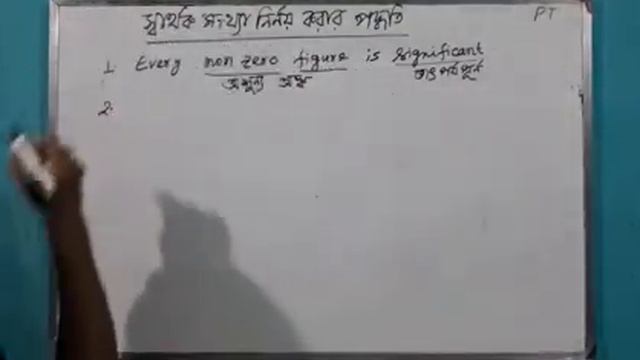 স্বার্থক সংখ্যা নির্নয় করার পদ্ধতি
PT
1. Every non zero figure is significant
অশূন্য অঙ্ক তাৎপর্যপূর্ন
2.